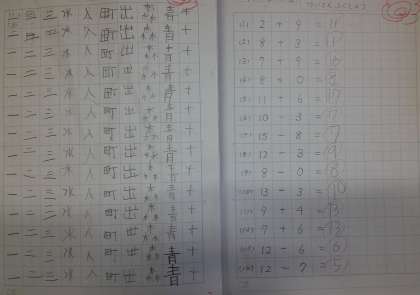 一 二 三 水 人 町 出 森 青 十
一 二 三 水 人 町 出 森 青 十
一 二 三 水 人 町 出 森 青 十
一 二 三 水 人 町 出 森 青 十
一 二 三 水 人 町 出 森 青 十
一 二 三 水 人 町 出 森 青 十
一 二 三 水 人 町 出 森 青 十
一 二 三 水 人 町 出 森 青 十
一 二 三 水 人 町 出 森 青 十
一 二 三 水 人 町 出 森 青 十
一 二 三 水 人 町 出 森 青 十
一 二 三 水 人 町 出 森 青 十
一 二 三 水 人 町 出 森 青 十
一 二 三 水 人 町 出 森 青 十
(1) 2 + 9 = 11
(2) 8 + 3 = 11
(3) 7 + 9 = 16
(4) 8 + 0 = 8
(5) 11 + 6 = 17
(6) 10 - 3 =
(7) 15 - 8 = 7
(8) 12 - 3 = 9
(9) 8 - 0 = 8
(10) 13 - 3 = 10
(11) 9 + 4 = 13
(12) 7 + 6 = 13
(13) 12 - 6 = 6
(14) 12 - 7 = 5